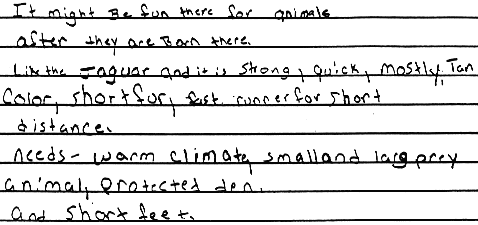 It might Be fun there for animals
after they are Born there.
Like the Jaguar and it is strong, quick, mostly Tan
Color, short fur, fast runner for short
distance.
needs - warm climate, small and larg prey
animal, protected den.
and short feet.